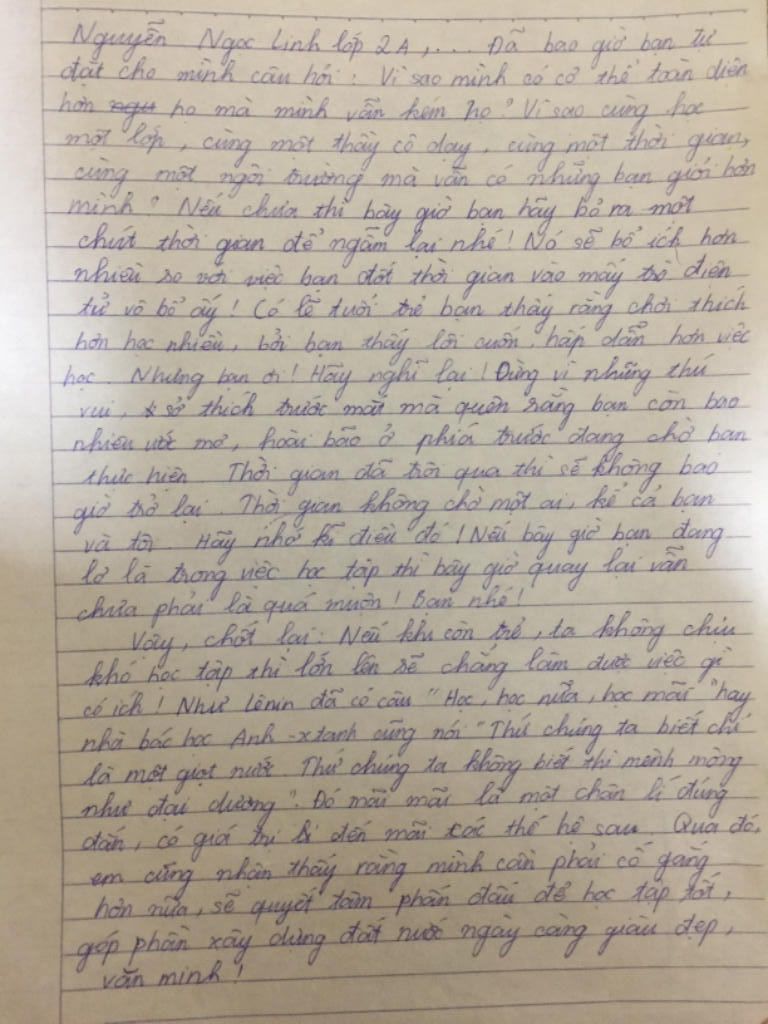 Nguyễn Ngọc Linh lớp 2A,... Đã bao giờ bạn tự
đặt cho mình câu hỏi: Vì sao mình có cơ thể toàn diện
hơn họ mà mình vẫn kém họ? Vì sao cùng học
một lớp, cùng một thầy cô dạy, cùng một thời gian,
cùng một ngôi trường mà vẫn có những bạn giỏi hơn
mình? Nếu chưa thì bây giờ bạn hãy bỏ ra một
chút thời gian để ngẫm lại nhé! Nó sẽ bổ ích hơn
nhiều so với việc bạn đốt thời gian vào mấy trò điện
tử vô bổ ấy! Có lẽ tuổi trẻ bạn thấy rằng chơi thích
hơn học nhiều, bởi bạn thấy lôi cuốn, hấp dẫn hơn việc
học. Nhưng bạn ơi! Hãy nghĩ lại! Đừng vì những thú
vui, sở thích trước mắt mà quên rằng bạn còn bao
nhiêu ước mơ, hoài bão ở phía trước đang chờ bạn
thực hiện. Thời gian đã trôi qua thì sẽ không bao
giờ trở lại. Thời gian không chờ một ai, kể cả bạn
và tôi. Hãy nhớ kĩ điều đó! Nếu bây giờ bạn đang
lơ là trong việc học tập thì bây giờ quay lại vẫn
chưa phải là quá muộn! Bạn nhé!
Vậy, chốt lại: Nếu khi còn trẻ, ta không chịu
khó học tập thì lớn lên sẽ chẳng làm được việc gì
có ích! Như Lênin đã có câu "Học, học nữa, học mãi" hay
nhà bác học Anh-xtanh cũng nói "Thứ chúng ta biết chỉ
là một giọt nước. Thứ chúng ta không biết thì mênh mông
như đại dương". Đó mãi mãi là một chân lí đúng
đắn, có giá trị đến mãi các thế hệ sau. Qua đó,
em cũng nhận thấy rằng mình cần phải cố gắng
hơn nữa, sẽ quyết tâm phấn đấu để học tập tốt,
góp phần xây dựng đất nước ngày càng giàu đẹp,
văn minh!